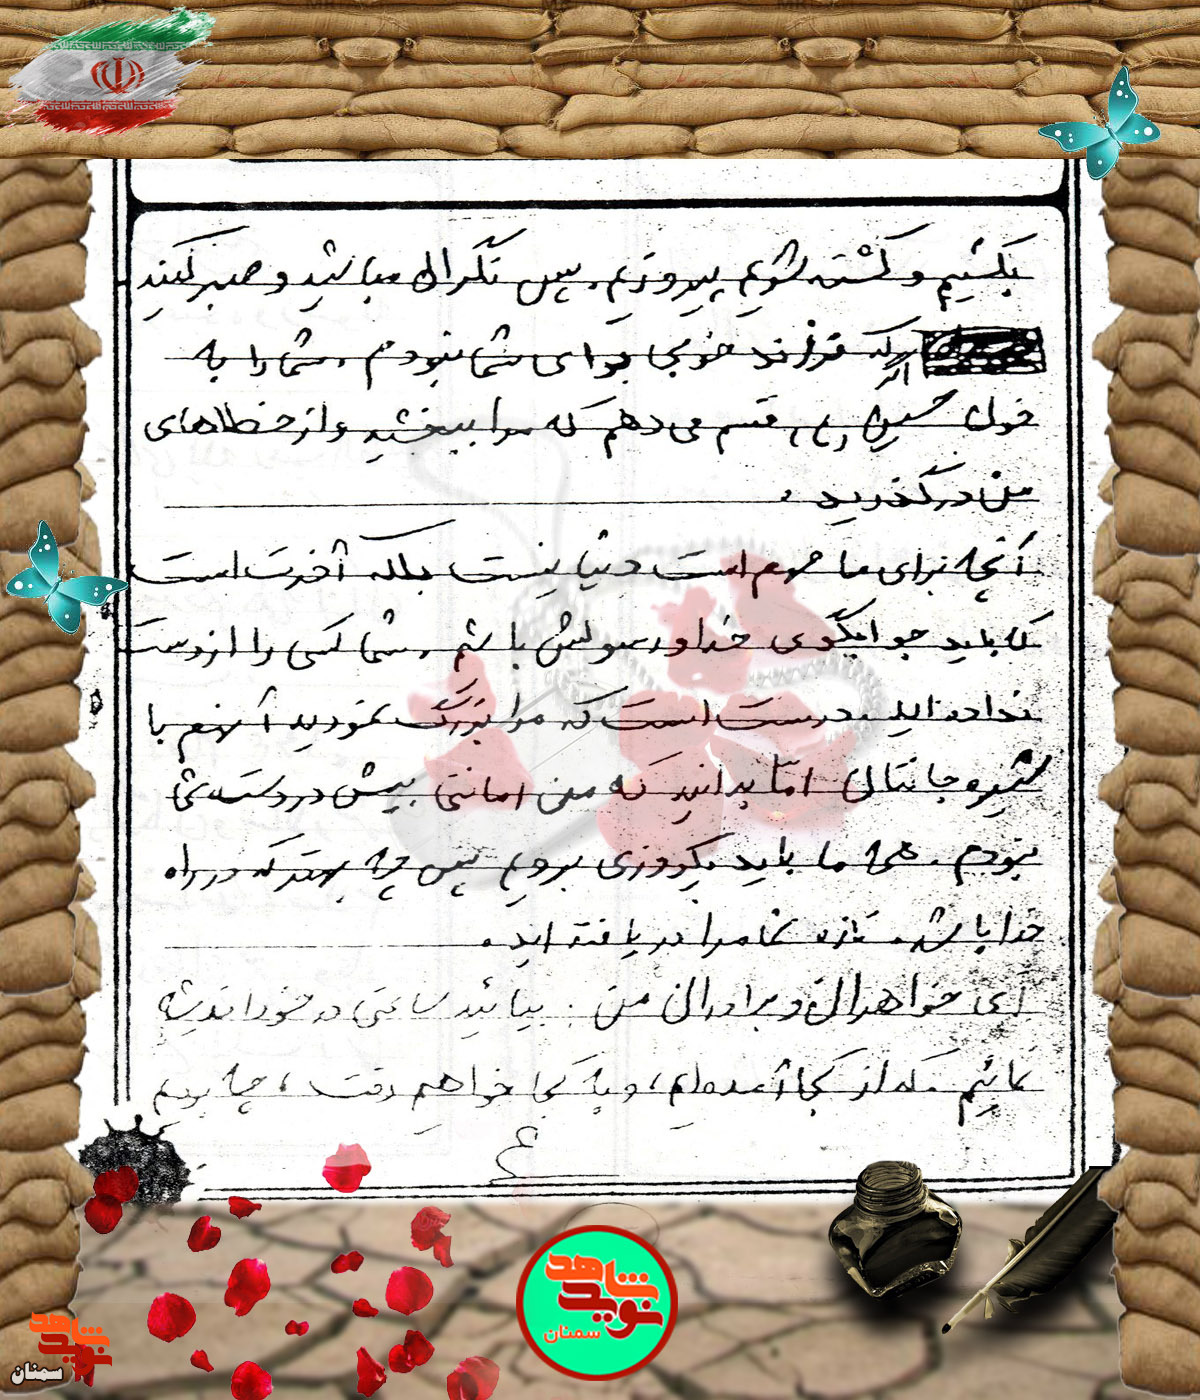 بکشیم و کشته شویم پیروزیم. پس نگران مباشید و صبر کنید
اگر که فرزند خوبی برای شما نبودم. شما را به
خون حسین (ع) قسم می دهم که مرا ببخشید و از خطاهای
من درگذرید.
آنچه برای ما مهم است دنیا نیست بلکه آخرت است
که باید جوابگوی خدا و رسولش باشم. شما کسی را از دست
نداده اید. درست است که مرا بزرگ نمودید آنهم با
شیره جانتان اما بدانید که من امانتی بیش در دست شما
نبودم. همه ما باید یکروزی برویم پس چه بهتر که در راه
خدا باشد. تازه شما مرا دریافته اید.
ای خواهران و برادران من. بیائید ساعتی در خود اندیشه
نمائیم. که از کجا آمده ایم، و به کجا خواهیم رفت، چه بودیم
شاهد
نوید
سمنان
شاهد
نوید
سمنان